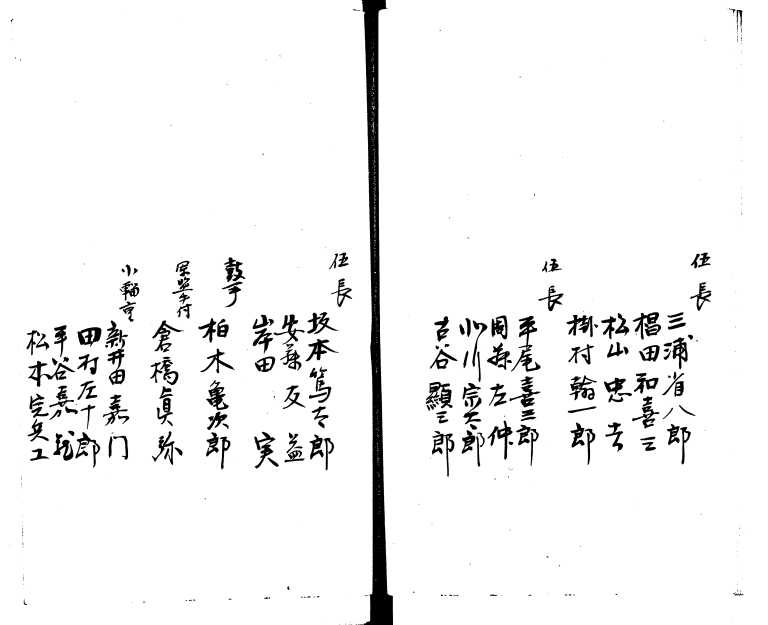 伍長
三浦省八郎
椙田和喜三
松山忠吉
掛村翰一郎
伍長
平尾喜三郎
岡藤左仲
北川宗太郎
古谷顯三郎
伍長
坂本篤太郎
安藤友益
岸田実
鼓手
柏木亀次郎
倉橋眞弥
新井田嘉門
田村左十郎
平谷嘉
松本